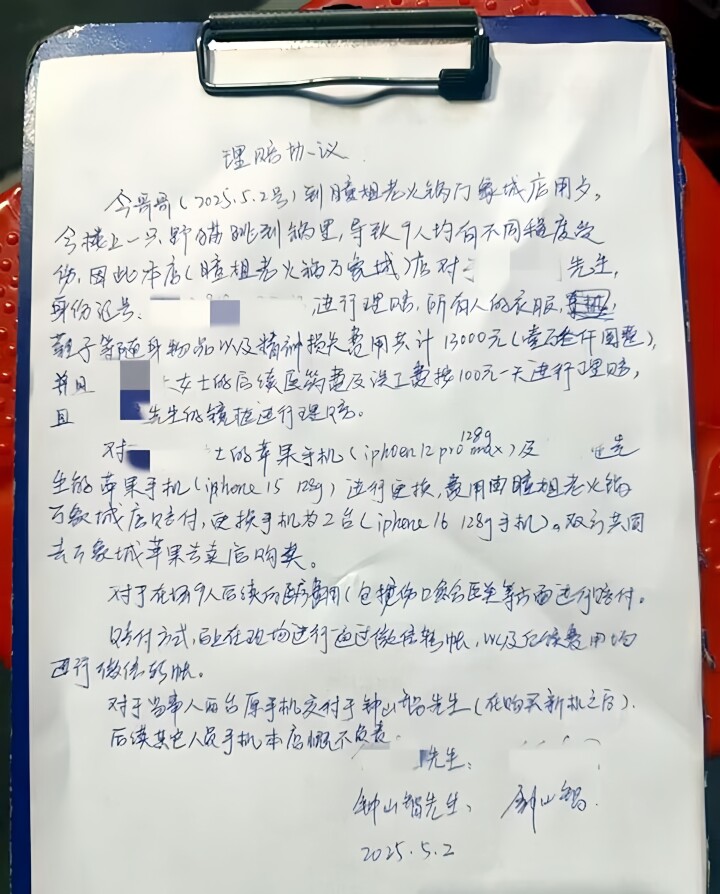 理赔协议
今哥哥(2025.5.2号)到瞳姐老火锅万象城店用夕,
今楼上一只野猫跳到锅里,导致9人均有不同程度受
伤,因此本店(瞳姐老火锅万象城)店对于 先生,
身份证号: ,进行理赔,所有人的衣服,
鞋子等随身物品以及精神损失费用共计13000元(壹万叁仟圆整),
并且 女士的后续医药费及误工费按100元一天进行理赔,
且 先生的镜框进行理赔。
对 士的苹果手机(iphoen 12 pro max 128g)及 先
生的苹果手机(iphone 15 128g)进行更换,费用由瞳姐老火锅
万象城店赔付,更换手机为2台(iphone 16 128g手机)。双方共同
去万象城苹果专卖店购买。
对于在场9人后续的医药费用(包括伤口愈合医美等方面进行赔付。
赔付方式,在现场进行通过微信转帐,以及后续费用均
进行微信转帐。
对于当事人两台原手机交付于钟山智先生(在购买新机之后).
后续其它人员手机本店概不负责.
先生:
钟山智先生: 钟山智.
2025.5.2